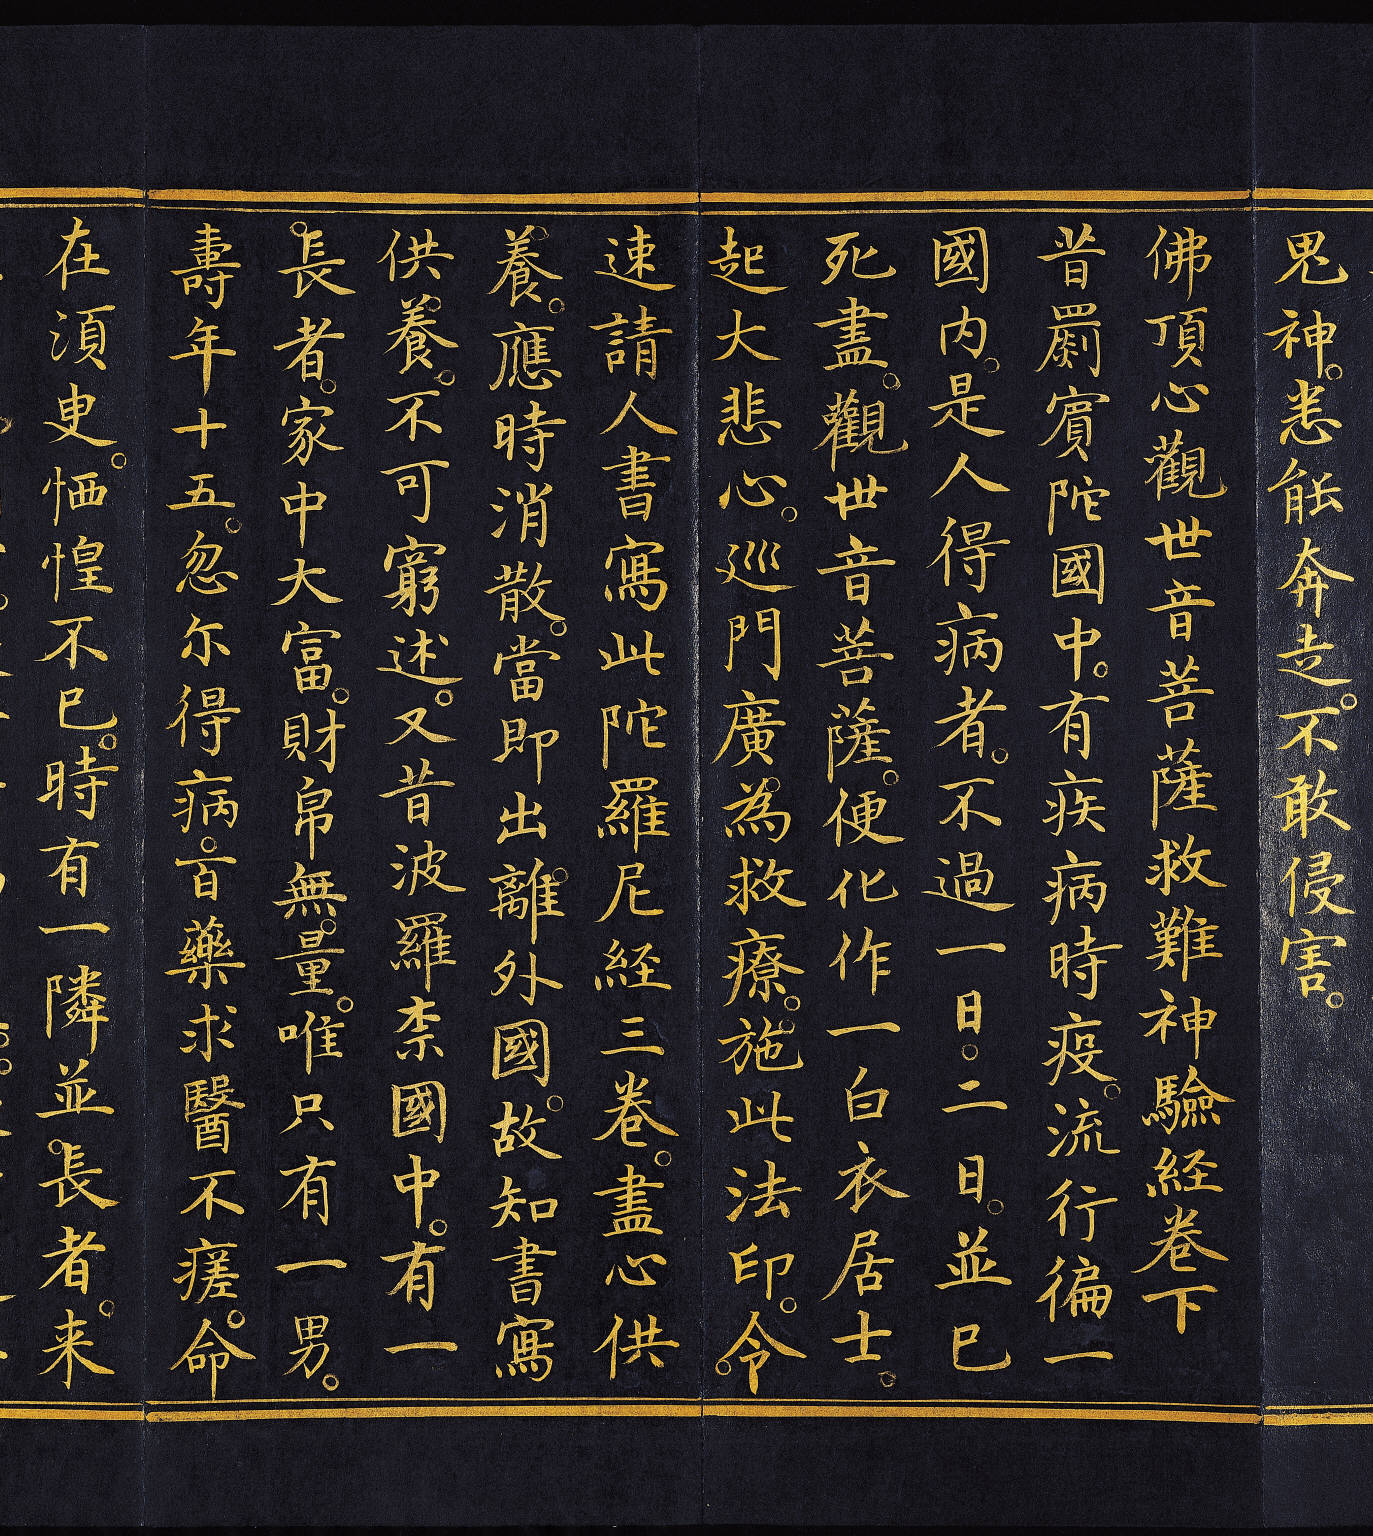 鬼神。悉能奔走。不敢侵害。
佛頂心觀世音菩薩救難神驗経卷下
昔罽賓陀國中。有疾病時疫。流行徧一
國內。是人得病者。不過一日。二日。並已
死盡。觀世音菩薩。便化作一白衣居士。
起大悲心。巡門廣。為救療。施此法印。令
速請人書寫此陀羅尼経三卷。盡心供
養。應時消散。當即出離。外國。故知書寫
供養。不可窮述。又昔波羅柰國中。有一
長者。家中大富。財帛無。量。唯只有一男。
壽年十五。忽尔得病。百藥求醫不瘥。命
在湏臾。恓惶不已。時有一隣並。長者。来